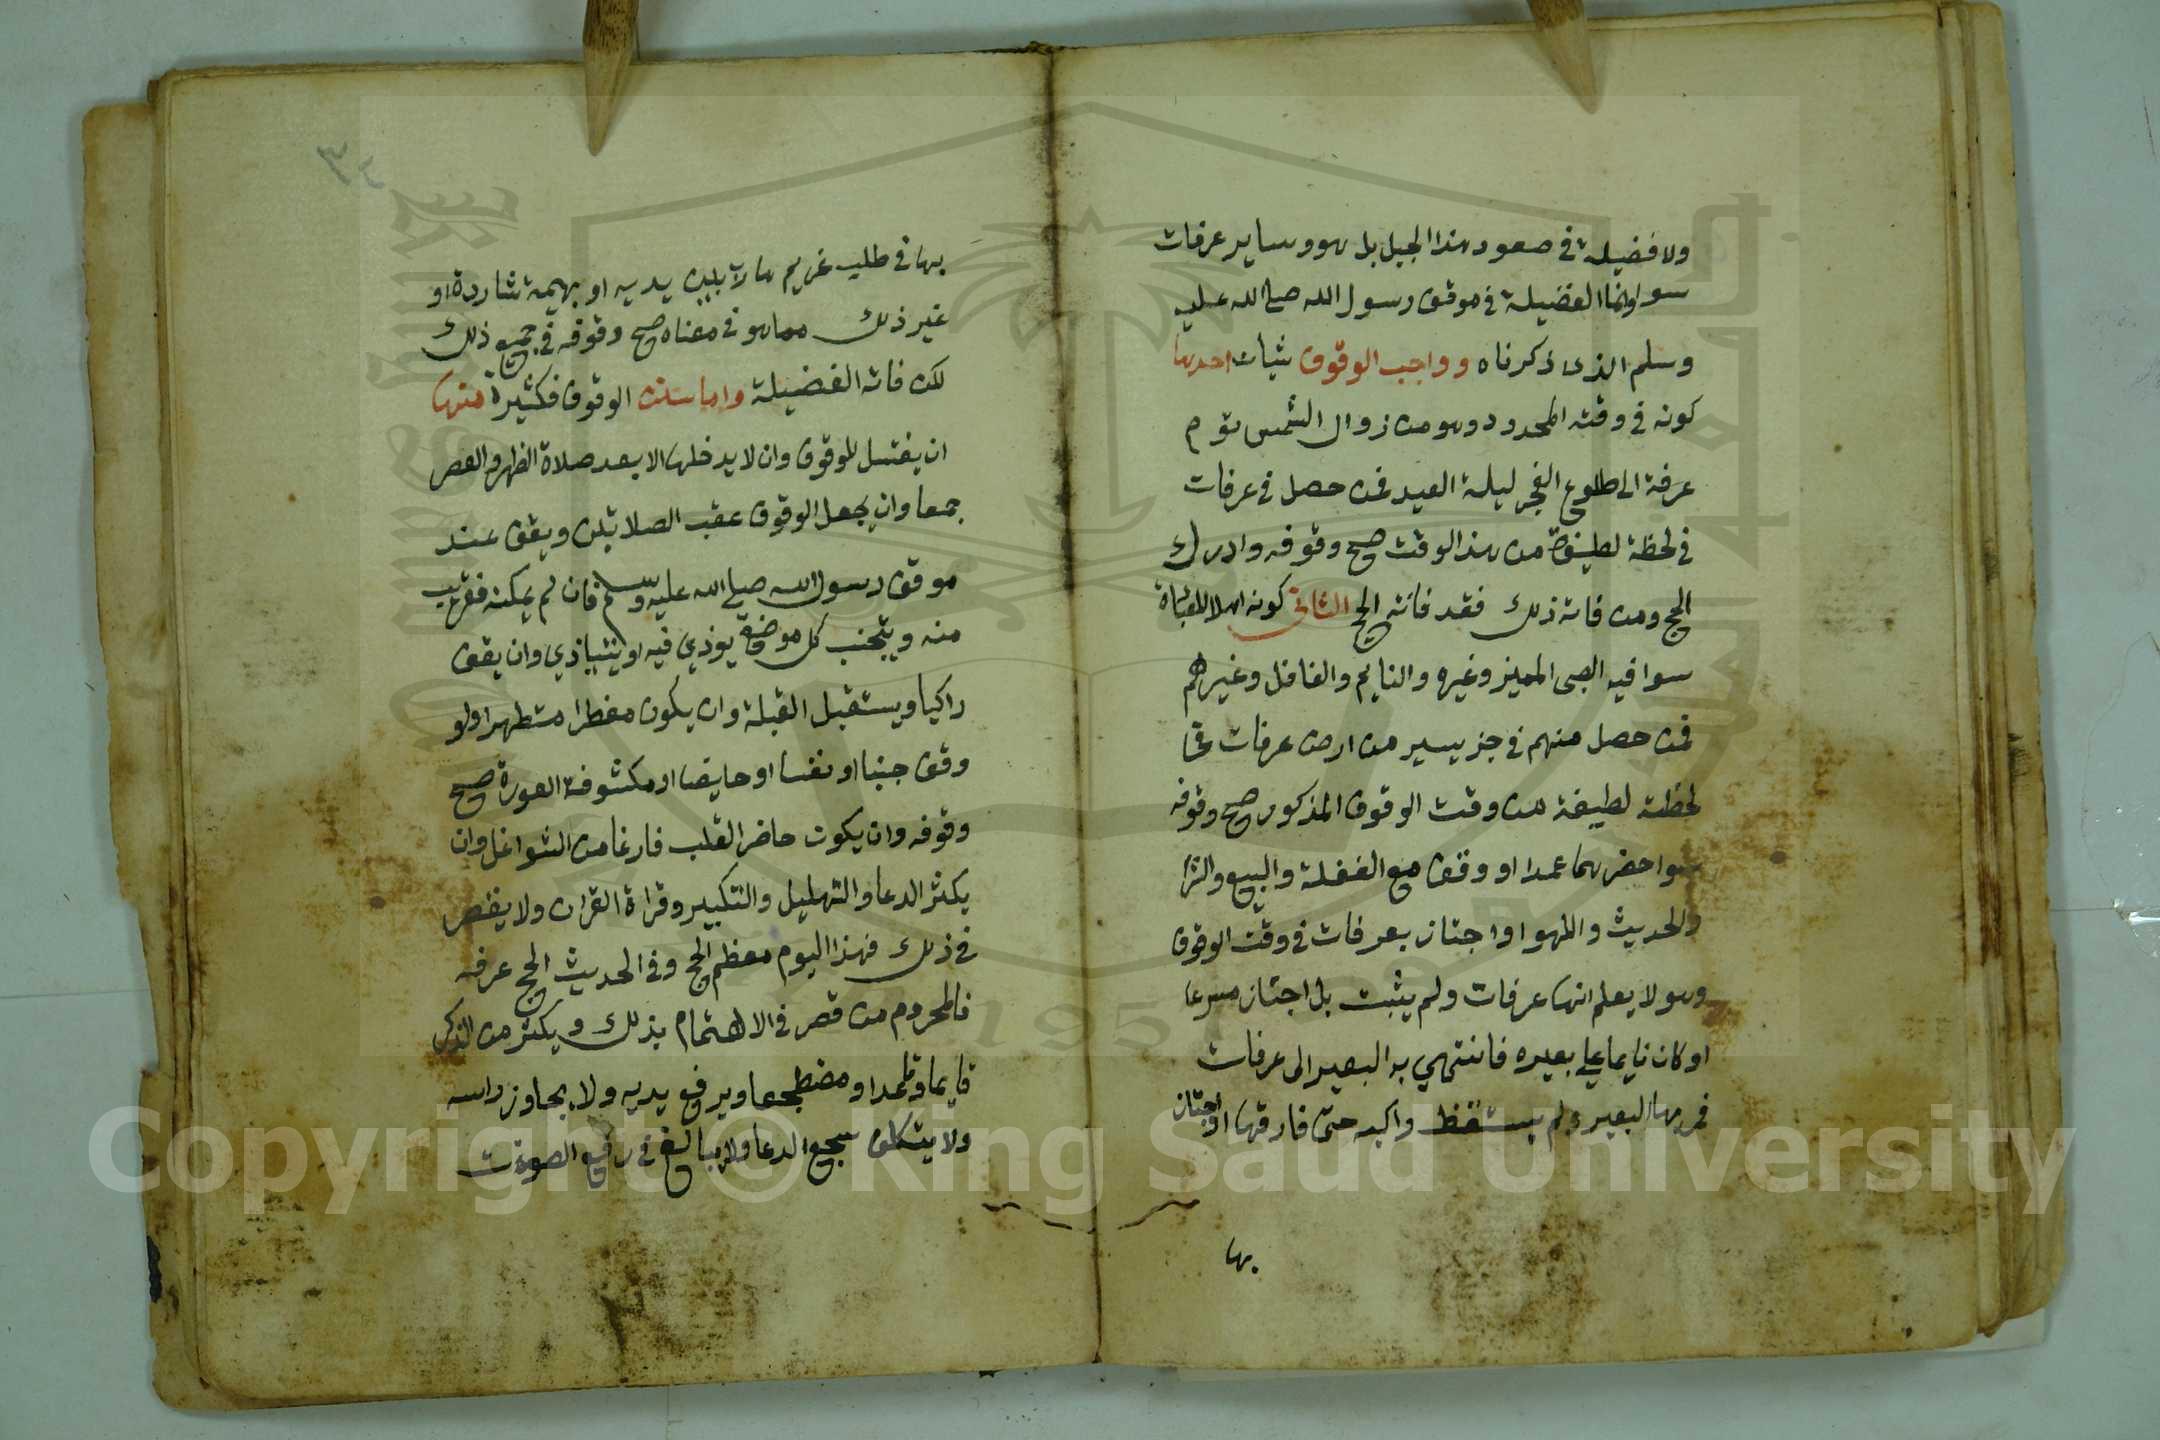 ولا فضيلة في صعود هذا الجبل بل هو وساير عرفات
سوا وانما الفضيلة في موقف رسول الله صلى الله عليه
وسلم الذى ذكرناه وواجب الوقوف شيات احدها
كونه في وقته المحدود وهو من زوال الشمس يوم
عرفة الى طلوع الفجر ليلة العيد فمن حصل في عرفات
في لحظة لطيفة من هذا الوقت صح وقوفه وادرك
الحج ومن فاته ذلك فقد فاته الحج الثاني كونه اهلا للعبادة
سوا فيه الصبى المميز وغيره والنايم والغافل وغيرهم
فمن حصل منهم في جز يسير من ارض عرفات في
لحظة لطيفة من وقت الوقوف المذكور صح وقوفه
سوا حضرها عمدا او وقف مع الغفلة والبيع والشرا
والحديث واللهو او اجتاز بعرفات في وقت الوقوف
وهو لا يعلم انها عرفات ولم يثبت بل اجتاز مسرعا
او كان نايما على بعيره فانتهي به البعير الى عرفات
فمر بها البعير ولم يستقظ راكبه حتى فارقها او اجتاز
بها
٣٤
بها في طلب غريم هارب بين يديه او بهيمة شاردة او
غير ذلك مما هو في معناه صح وقوفه في جميع ذلك
لكن فاته الفضيلة واما سنن الوقوف فكثيرة منها
ان يغتسل للوقوف وان لا يدخلها الا بعد صلاة الظهر والعصر
جمعا وان يجعل الوقوف عقب الصلاتين ويقف عند
موقف رسول الله صلى الله عليه وسلم فان لم يمكنه فقريب
منه ويتجنب كل موضع يوذي فيه او يتاذي وان يقف
راكبا ويستقبل القبلة وان يكون مفطرا متطهرا ولو
وقف جنبا او نفسا او حايضا او مكشوفة العورة صح
وقوفه وان يكون حاضر القلب فارغا من الشواغل وان
يكثر الدعا والتهليل والتكبير وقراة القران ولا يقصر
في ذلك فهذا اليوم معظم الحج وفي الحديث الحج عرفه
فالمحروم من قصر في الاهتمام بذلك ويكثر من الذكر
قايما وقاعدا ومضطجعا ويرفع يديه ولا يجاوز راسه
ولا يتكلف سجع الدعا ولا يبالغ في رفع الصوت
1957
Copyright © King Saud University